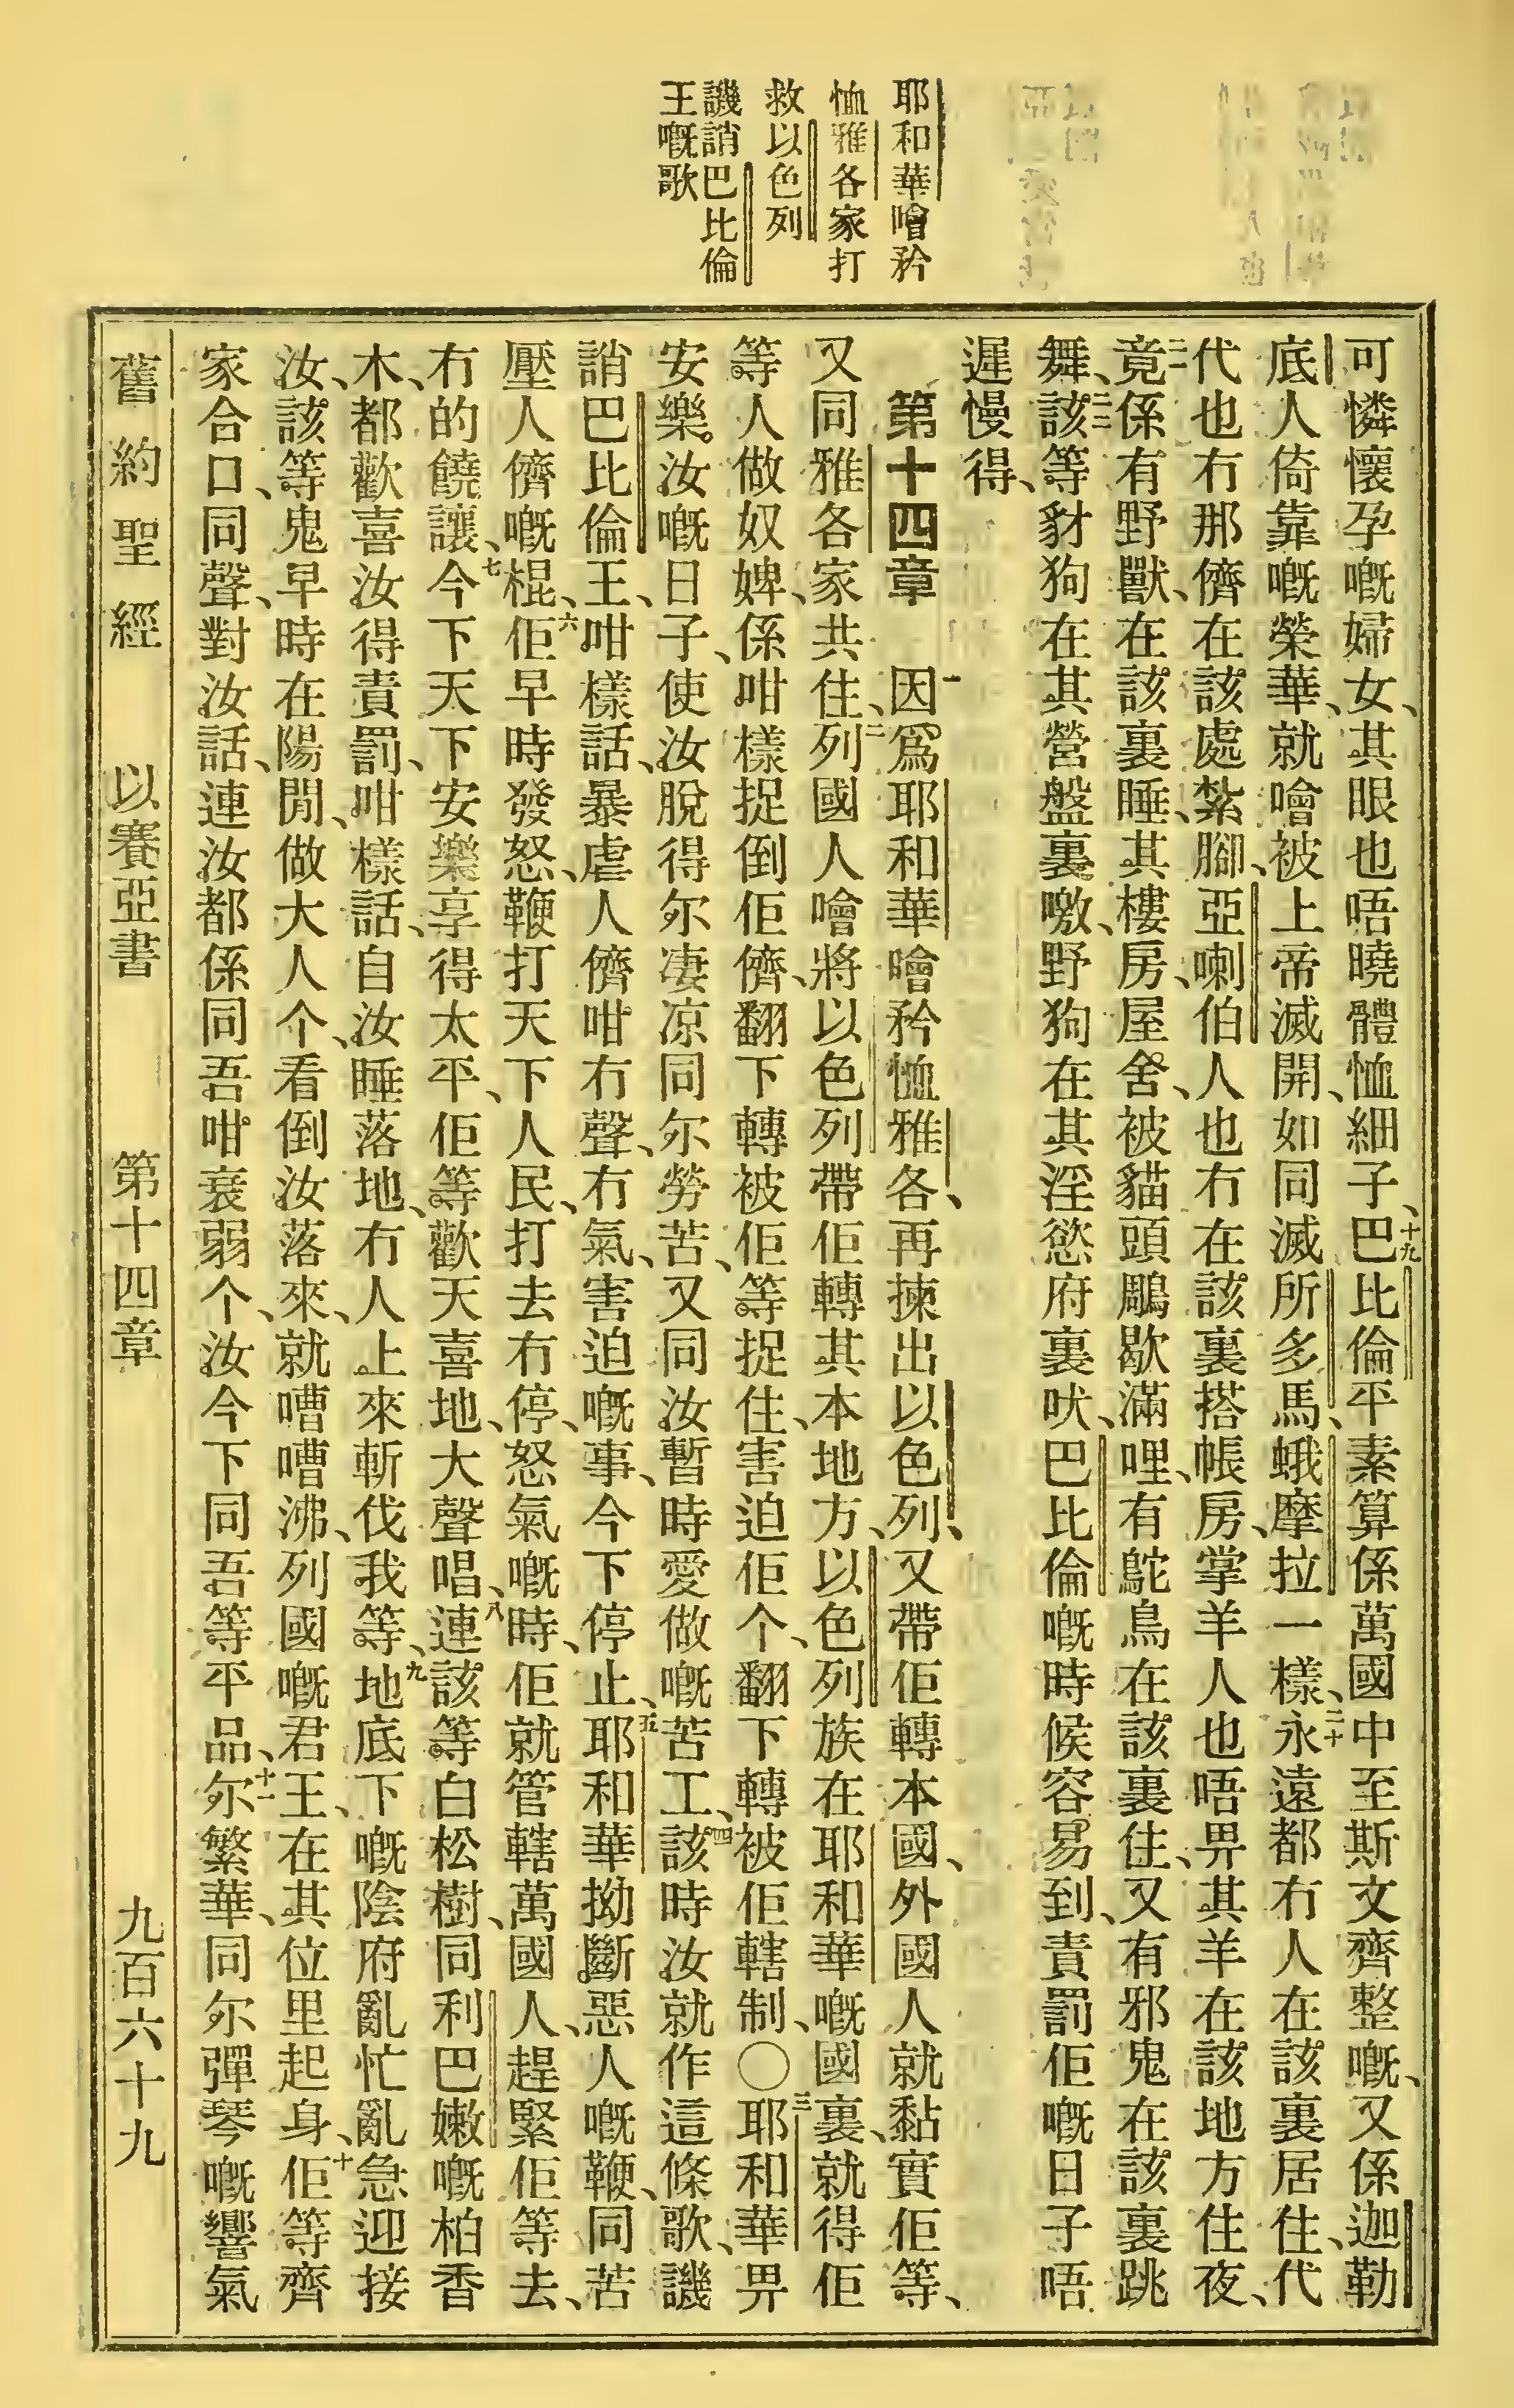 耶和華噲矜
恤雅各家打
救以色列
譏誚巴比倫
王嘅歌
可憐懷孕嘅婦女、其眼也唔曉體恤細子、十九巴比倫平素算係萬國中至斯文齊整嘅、又係迦勒
底人倚靠嘅榮華、就噲被上帝滅開、如同滅所多馬、蛾摩拉一樣、二十永遠都冇人在該裏居住、代
代也冇那儕在該處紮腳、亞喇伯人也冇在該裏搭帳房、掌羊人也唔畀其羊在該地方住夜、
二一竟係有野獸、在該裏睡、其樓房屋舍、被貓頭鵰歇滿哩、有鴕鳥在該裏住、又有邪鬼在該裏跳
舞、二二該等豺狗在其營盤裏噭、野狗在其淫慾府裏吠、巴比倫嘅時候容易到、責罰佢嘅日子唔
遲慢得、
第十四章　一因爲耶和華噲矜恤雅各、再揀出以色列、又帶佢轉本國、外國人就黏實佢等、
又同雅各家共住、二列國人噲將以色列帶佢轉其本地方、以色列族在耶和華嘅國裏、就得佢
等人做奴婢、係咁樣捉倒佢儕、翻下轉被佢等捉住、害迫佢个、翻下轉被佢轄制、〇三耶和華畀
安樂汝嘅日子、使汝脫得尓凄凉同尓勞苦、又同汝暫時愛做嘅苦工、四該時汝就作這條歌、譏
誚巴比倫王、咁樣話、暴虐人儕咁冇聲、冇氣、害迫嘅事、今下停止、五耶和華拗斷惡人嘅鞭、同苦
壓人儕嘅棍、六佢早時發怒、鞭打天下人民、打去冇停、怒氣嘅時、佢就管轄萬國人、趕緊佢等去、
冇的饒讓、七今下天下安樂享得太平、佢等歡天喜地、大聲唱、八連該等白松樹、同利巴嫩嘅柏香
木、都歡喜汝得責罰、咁樣話、自汝睡落地、冇人上來斬伐我等、九地底下嘅陰府亂忙亂急迎接
汝、該等鬼早時在陽間、做大人个、看倒汝落來、就嘈嘈沸、列國嘅君王、在其位里起身、十佢等齊
家合口、同聲、對汝話、連汝都係同吾咁衰弱个、汝今下同吾等平品、十一尓繁華、同尓彈琴嘅響氣
舊約聖經　以賽亞書　第十四章　九百六十九